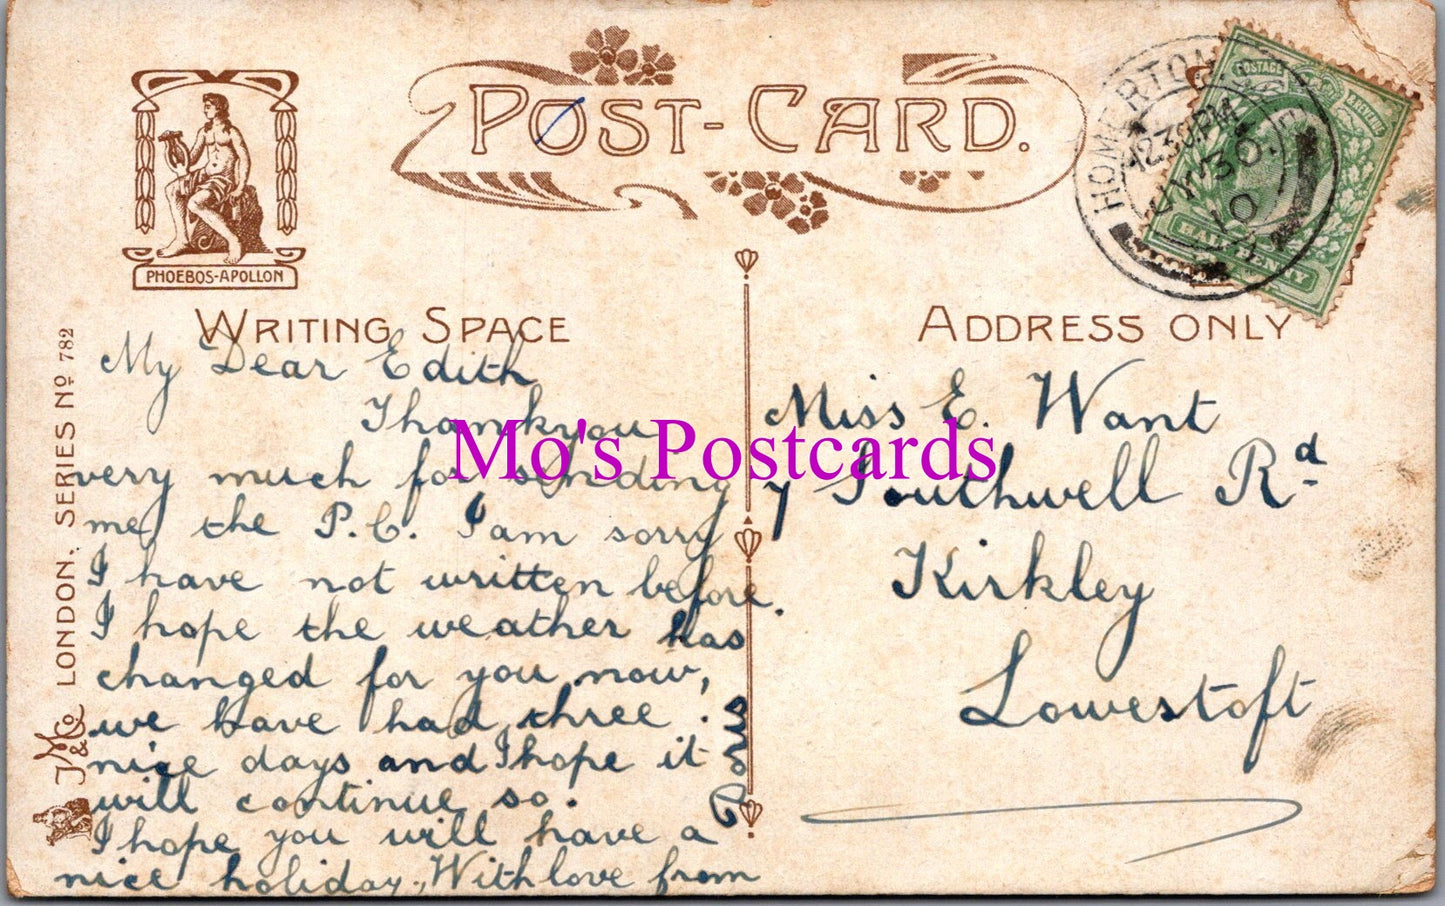 POST-CARD.
PHOEBOS-APOLLON
HOMERTON
12.30PM
30
10
POSTAGE
HALFPENNY
WRITING SPACE
ADDRESS ONLY
LONDON. SERIES Nº 782
My Dear Edith
Thankyou
very much for sending
me the P.C. I am sorry
I have not written before.
I hope the weather has
changed for you now,
we have had three
nice days and I hope it
will continue so.
I hope you will have a
nice holiday. With love from
Doris
Miss E. Want
7 Southwell Rd
Kirkley
Lowestoft
Mo's Postcards